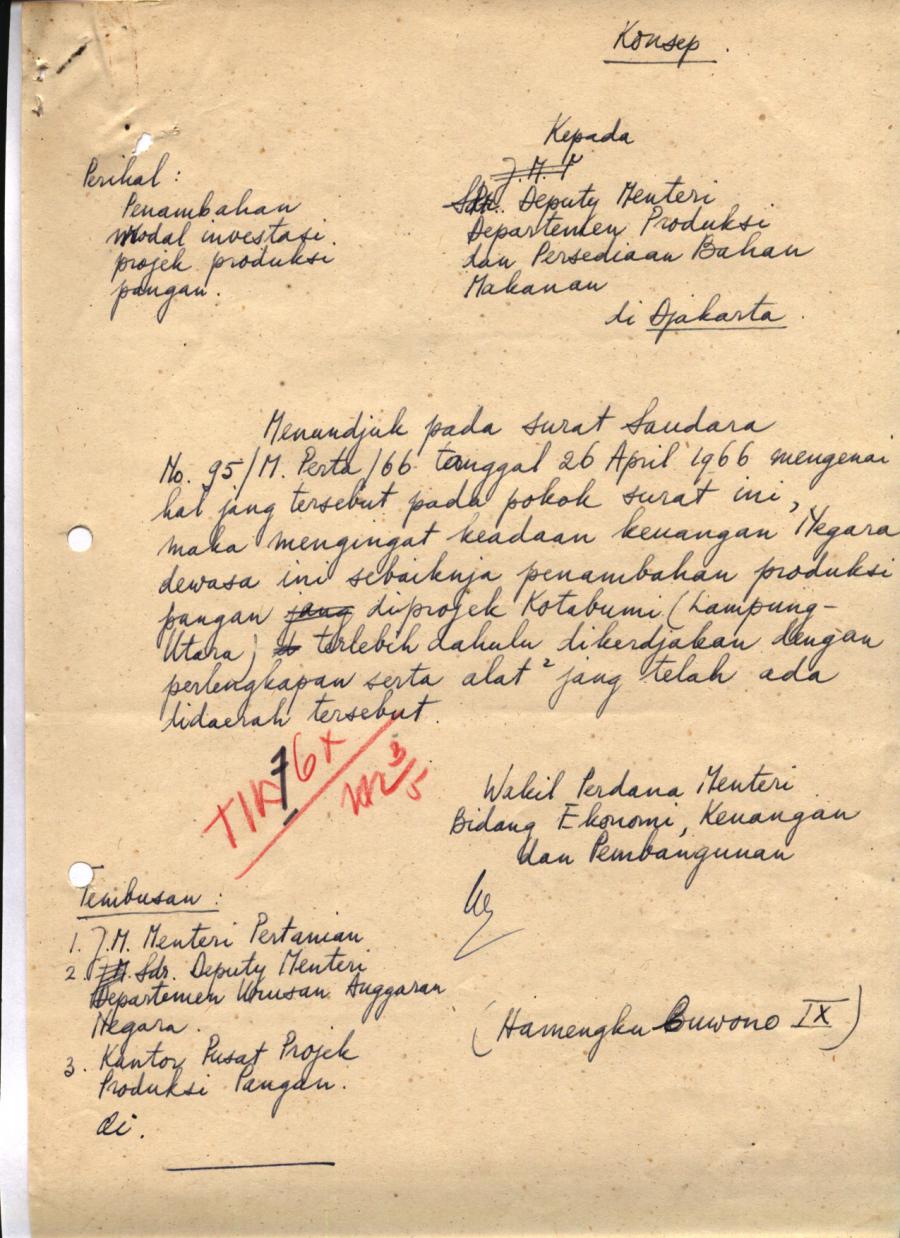 Konsep.
Kepada
J.M.
Sdr. Deputy Menteri
Departemen Produksi
dan Persediaan Bahan
Makanan
di Djakarta.
Perihal :
Penambahan
modal investasi
projek produksi
pangan.
Menundjuk pada surat Saudara
No. 95/M. Perta/66 tanggal 26 April 1966 mengenai
hal jang tersebut pada pokok surat ini,
maka mengingat keadaan keuangan Negara
dewasa ini sebaiknja penambahan produksi
pangan jang diprojek Kotabumi (Lampung-
Utara) terlebih dahulu dikerdjakan dengan
perlengkapan serta alat² jang telah ada
didaerah tersebut.
TIK 7 6x
3/5
Wakil Perdana Menteri
Bidang Ekonomi, Keuangan
dan Pembangunan
(Hamengku Buwono IX)
Tembusan :
1. J.M. Menteri Pertanian
2. J.M. Sdr. Deputy Menteri
Departemen Urusan Anggaran
Negara.
3. Kantor Pusat Projek
Produksi Pangan.
di.